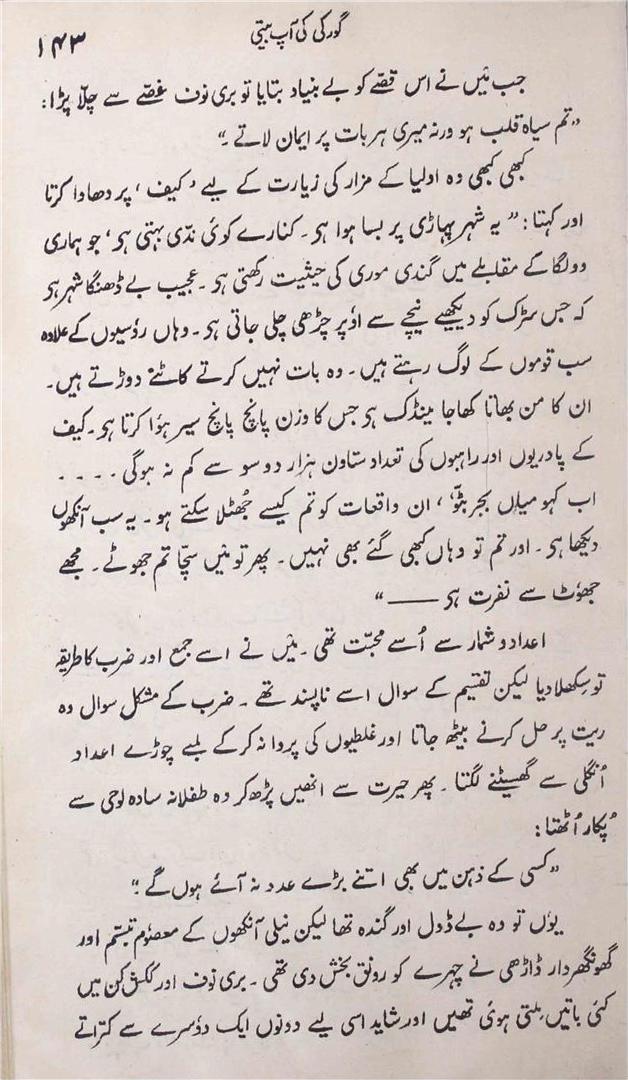 گورکی کی آپ بیتی
۱۴۳
جب مَیں نے اس قصّے کو بے بنیاد بتایا تو بری نوف غصّے سے چلّا پڑا:
”تم سیاہ قلب ہو ورنہ میری ہر بات پر ایمان لاتے۔“
کبھی کبھی وہ اولیا کے مزار کی زیارت کے لیے ’کیف‘ پر دھاوا کرتا
اور کہتا: ”یہ شہر پہاڑی پر بسا ہوا ہی۔ کنارے کوئی ندّی بہتی ہی، جو ہماری
وولگا کے مقابلے میں گندی موری کی حیثیت رکھتی ہی۔ عجیب بے ڈھنگا شہر ہی
کہ جس سڑک کو دیکھیے نیچے سے اؤپر چڑھی چلی جاتی ہی۔ وہاں رؤسیوں کے علاوہ
سب قوموں کے لوگ رہتے ہیں۔ وہ بات نہیں کرتے کاٹنے دوڑتے ہیں۔
ان کا من بھاتا کھاجا مینڈک ہی جس کا وزن پانچ پانچ سیر ہؤا کرتا ہی۔ کیف
کے پادریوں اور راہبوں کی تعداد ستاون ہزار دو سو سے کم نہ ہوگی ۔ ۔ ۔ ۔
اب کہو میاں بجر بٹّو، ان واقعات کو تم کیسے جُھٹلا سکتے ہو۔ یہ سب آنکھوں
دیکھا ہی۔ اور تم تو وہاں کبھی گئے بھی نہیں۔ پھر تو مَیں سچّا تم جھوٹے۔ مجھے
جھوٗٹ سے نفرت ہی ——“
اعداد و شمار سے اُسے محبّت تھی۔ مَیں نے اسے جمع اور ضرب کا طریقہ
تو سِکھلا دیا لیکن تقسیم کے سوال اسے ناپسند تھے۔ ضرب کے مشکل سوال وہ
ریت پر حل کرنے بیٹھ جاتا اور غلطیوں کی پروا نہ کرکے لمبے چوڑے اعداد
اُنگلی سے گھسیٹنے لگتا۔ پھر حیرت سے انھیں پڑھ کر وہ طفلانہ سادہ لوحی سے
پُکار اُٹھتا:
”کسی کے ذہن میں بھی اتنے بڑے عدد نہ آئے ہوں گے۔“
یوٗں تو وہ بے ڈول اور گندہ تھا لیکن نیلی آنکھوں کے معصوٗم تبسّم اور
گھونگھردار ڈاڑھی نے چہرے کو رونق بخش دی تھی۔ بری نوف اور ککش کن میں
کئی باتیں مِلتی ہوئی تھیں اور شاید اسی لیے دونوں ایک دؤسرے سے کتراتے